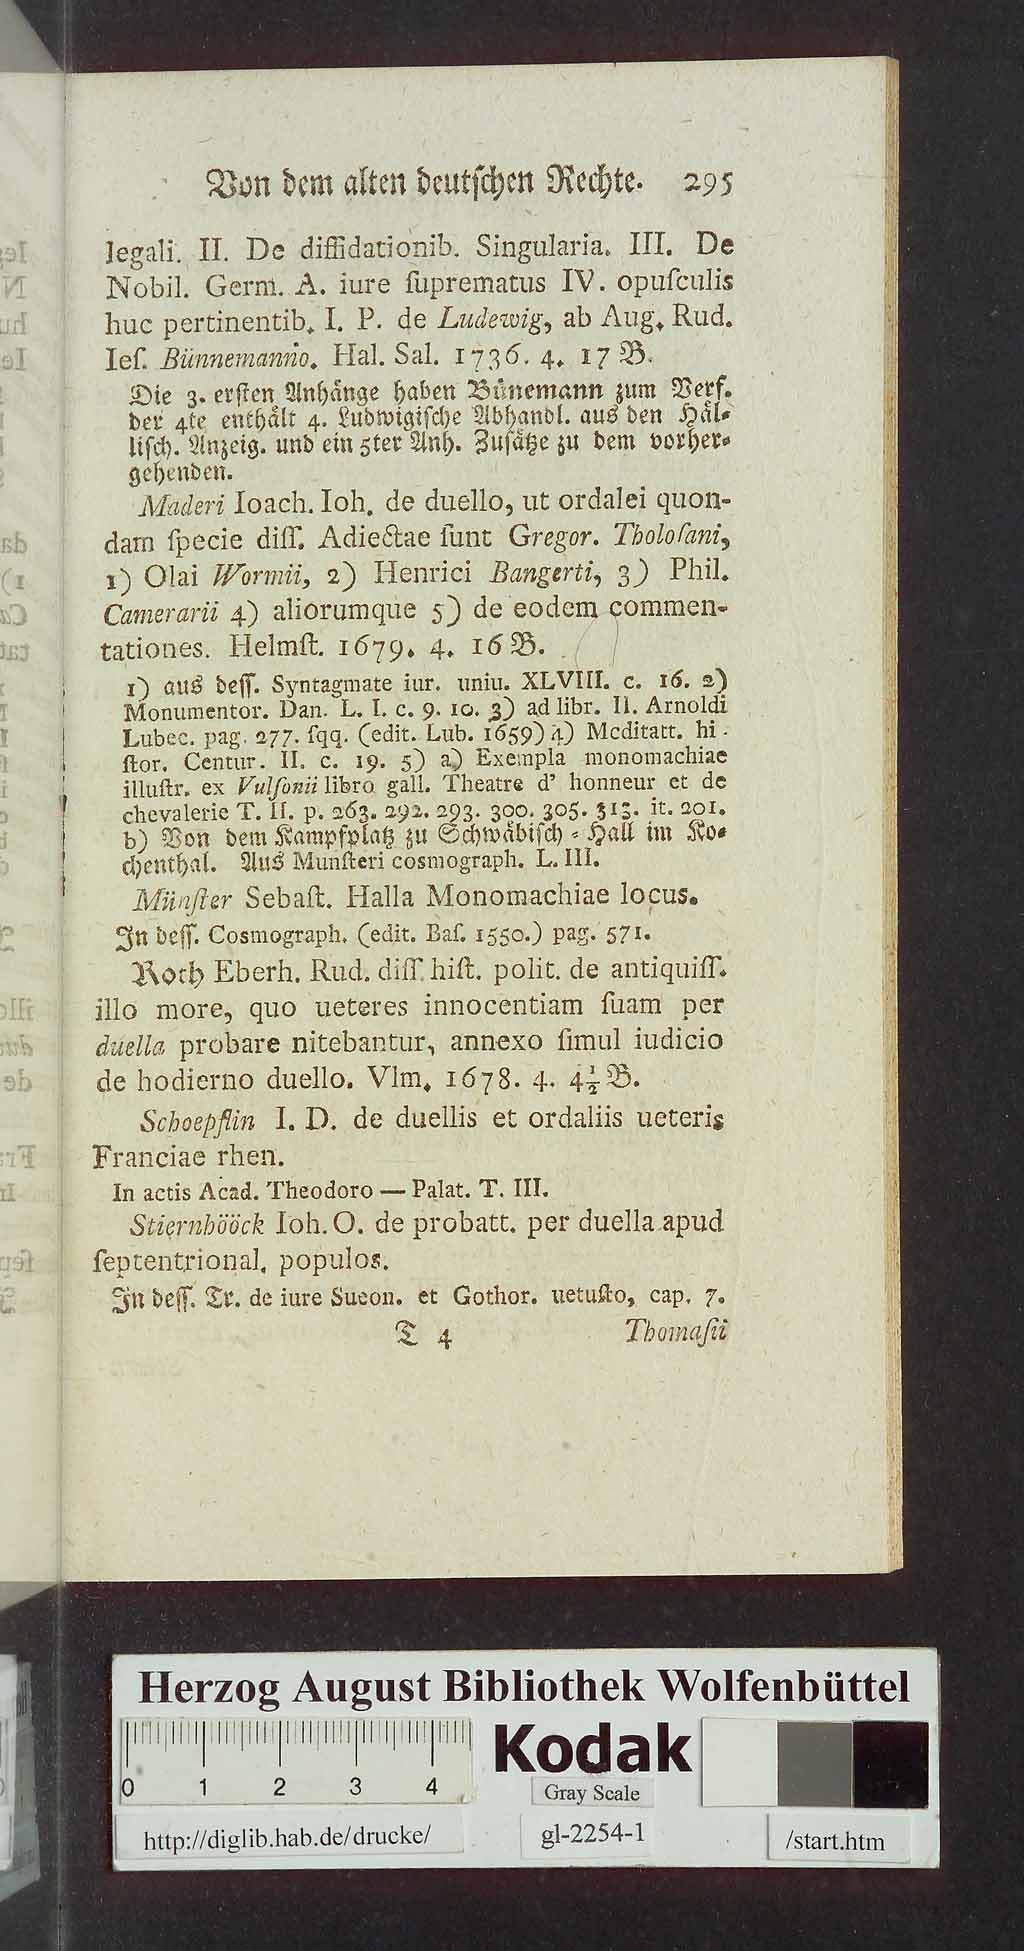 Von dem alten deutſchen Rechte. 295
legali. II. De diffidationib. Singularia. III. De
Nobil. Germ. A. iure ſuprematus IV. opuſculis
huc pertinentib. I. P. de Ludewig, ab Aug. Rud.
Ieſ. Bünnemanno. Hal. Sal. 1736. 4. 17 B.
Die 3. erſten Anhänge haben Bünemann zum Verf.
der 4te enthält 4. Ludwigiſche Abhandl. aus den Häl⸗
liſch. Anzeig. und ein 5ter Anh. Zuſätze zu dem vorher⸗
gehenden.
Maderi Ioach. Ioh. de duello, ut ordalei quon-
dam ſpecie diſſ. Adiectae ſunt Gregor. Tholoſani,
1) Olai Wormii, 2) Henrici Bangerti, 3) Phil.
Camerarii 4) aliorumque 5) de eodem commen-
tationes. Helmſt. 1679. 4. 16 B.
1) aus deſſ. Syntagmate iur. uniu. XLVIII. c. 16. 2)
Monumentor. Dan. L. I. c. 9. 10. 3) ad libr. II. Arnoldi
Lubec. pag. 277. ſqq. (edit. Lub. 1659) 4) Meditatt. hi-
ſtor. Centur. II. c. 19. 5) a) Exempla monomachiae
illuſtr. ex Vulſonii libro gall. Theatre d' honneur et de
chevalerie T. II. p. 263. 292. 293. 300. 305. 313. it. 201.
b) Von dem Kampfplatz zu Schwäbiſch⸗Hall im Ko⸗
chenthal. Aus Munſteri cosmograph. L. III.
Münſter Sebaſt. Halla Monomachiae locus.
In deſſ. Cosmograph. (edit. Baſ. 1550.) pag. 571.
Roth Eberh. Rud. diſſ. hiſt. polit. de antiquiſſ.
illo more, quo ueteres innocentiam ſuam per
duella probare nitebantur, annexo ſimul iudicio
de hodierno duello. Vlm. 1678. 4. 4½ B.
Schoepflin I. D. de duellis et ordaliis ueteris
Franciae rhen.
In actis Acad. Theodoro — Palat. T. III.
Stiernhööck Ioh. O. de probatt. per duella apud
ſeptentrional. populos.
In deſſ. Tr. de iure Sueon. et Gothor. uetuſto, cap. 7.
T 4 Thomaſii
Herzog August Bibliothek Wolfenbüttel
0 1 2 3 4
Kodak
Gray Scale
http://diglib.hab.de/drucke/ gl-2254-1 /start.htm